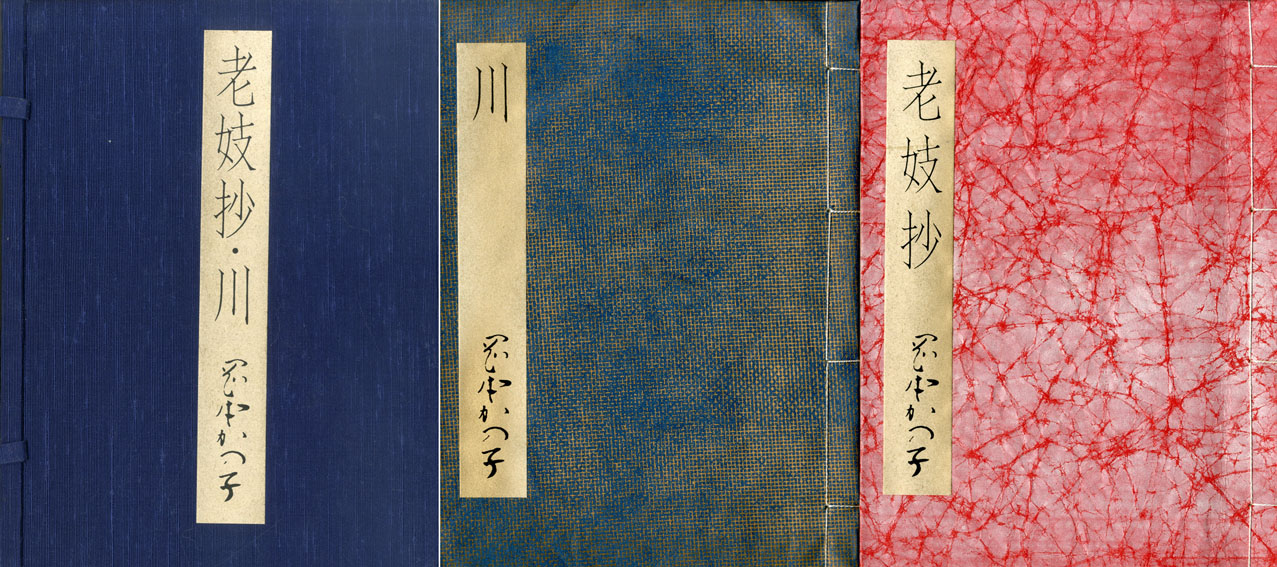 老妓抄・川
岡本かの子
川
岡本かの子
老妓抄
岡本かの子